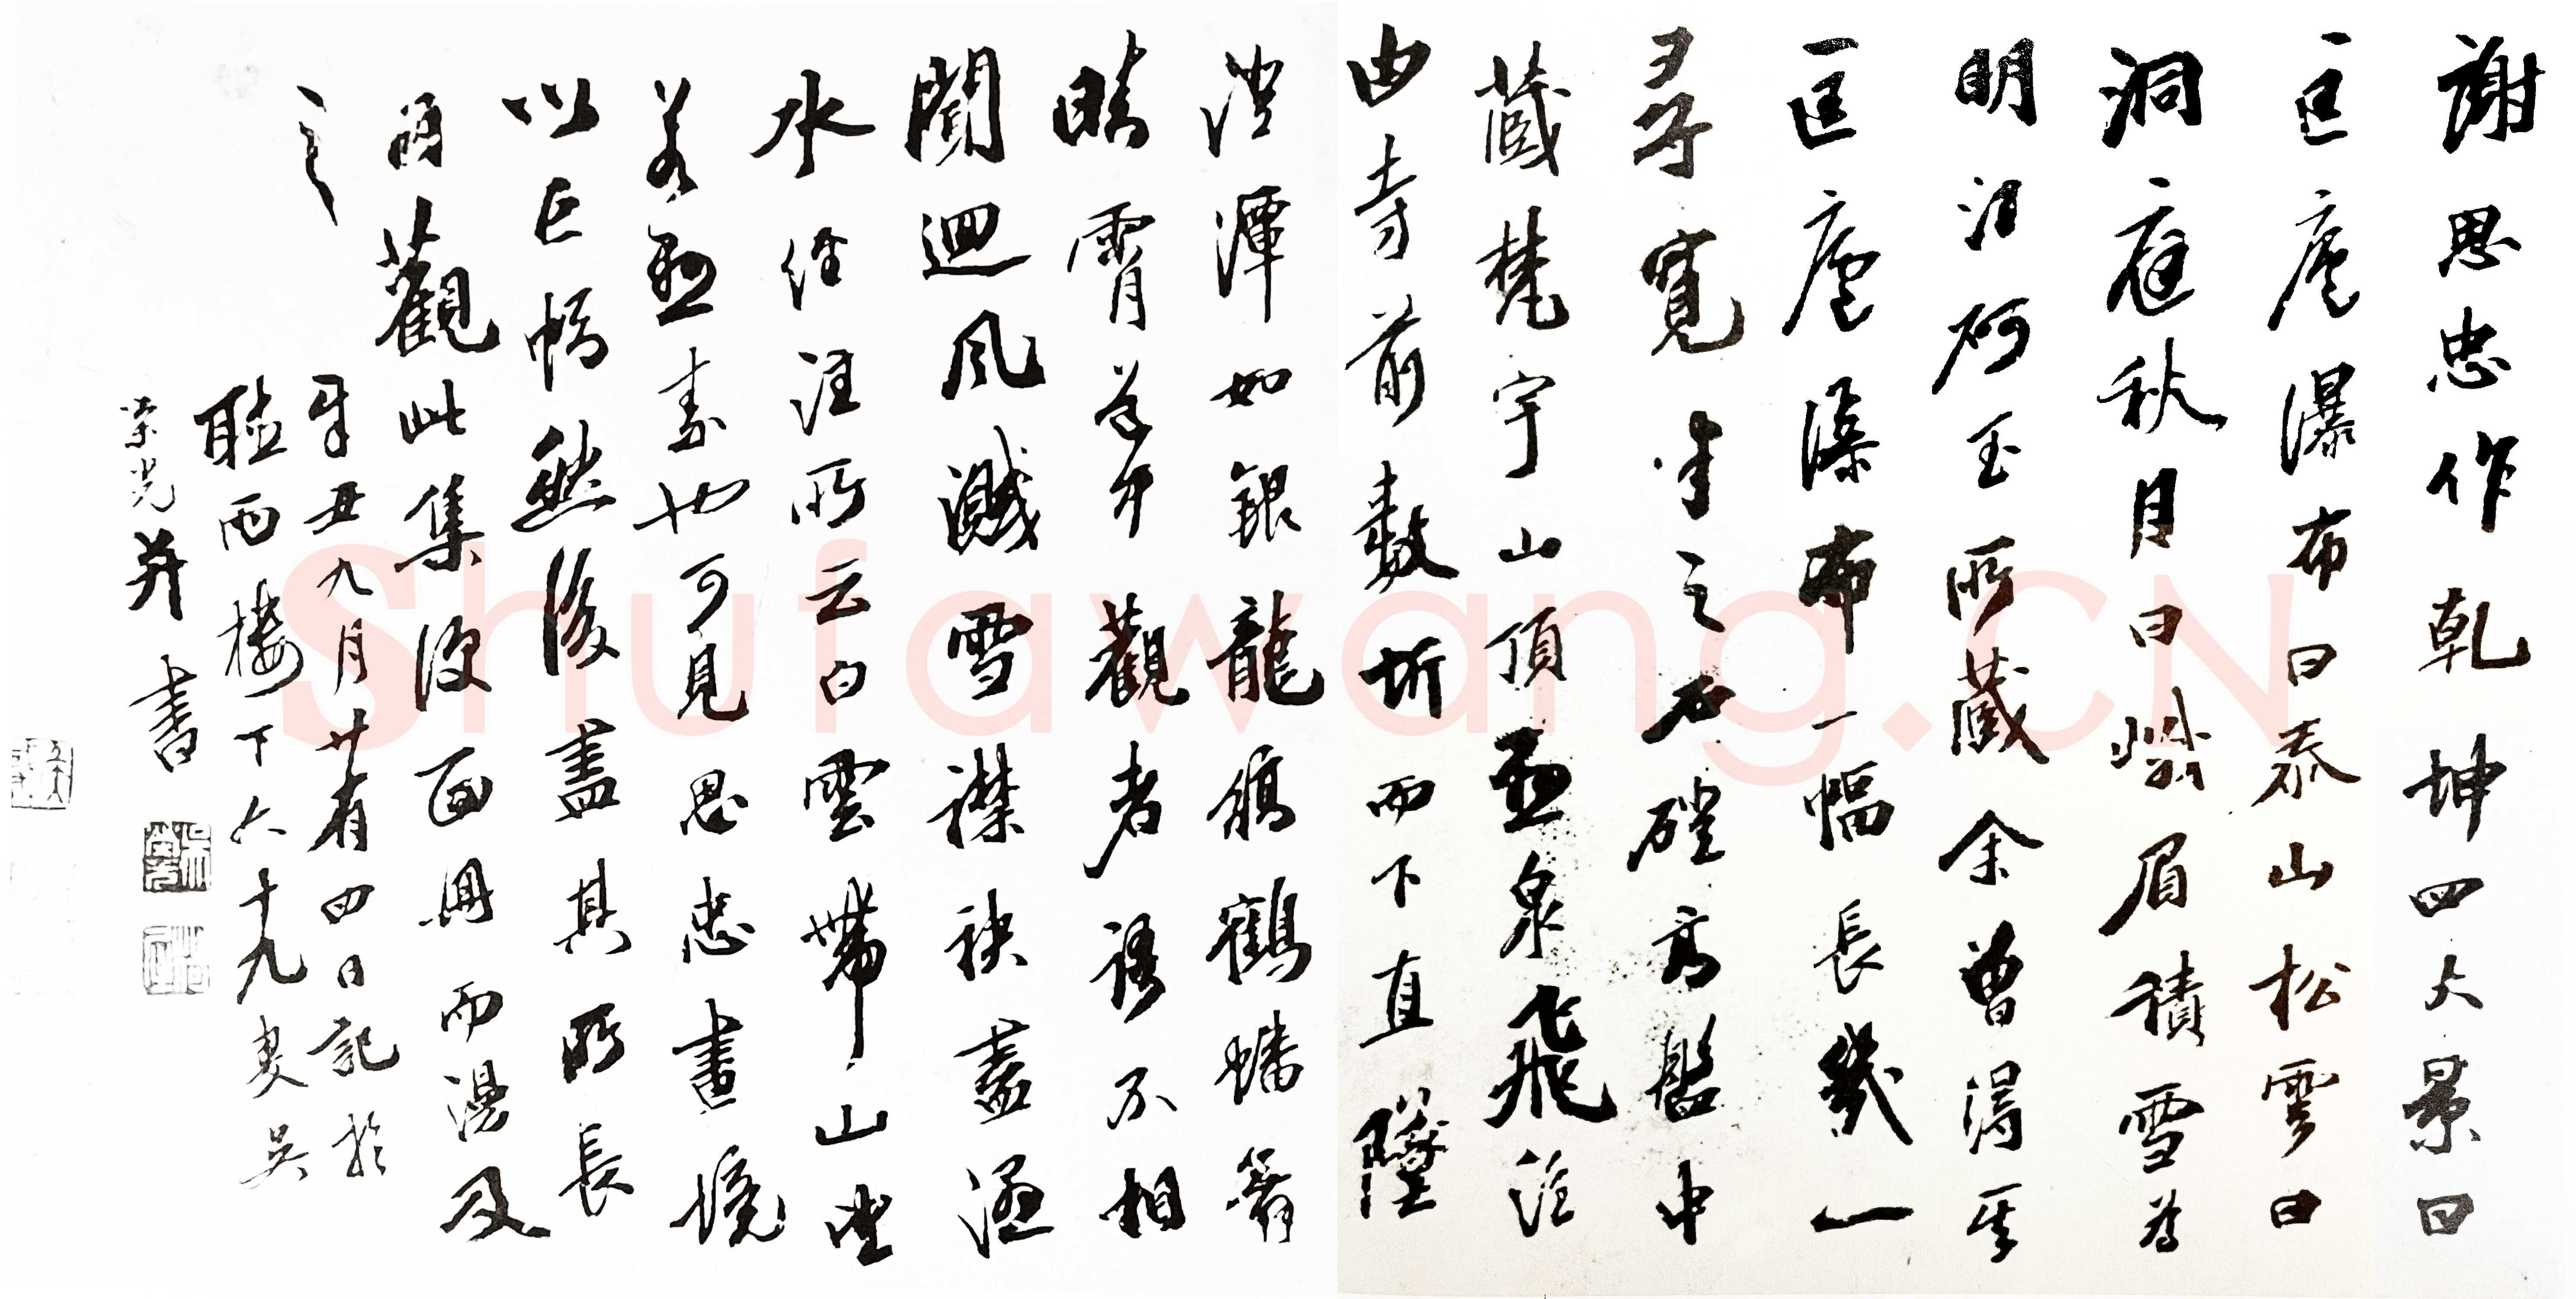 謝思忠作乾坤四大景曰
匡廬瀑布曰泰山松雲曰
洞庭秋月曰峨眉積雪為
明汪砢玉所藏余曾得其
匡廬瀑布一幅長幾一
尋寬半之石磴高盤中
藏梵宇山頂亟泉飛注
由寺前數圻而下直墜
澄潭如銀龍鴉鶴蟠翥
晴霄前觀者語不相
聞迴風濺雪襟袂盡濕
水經注所云白雲帶山望
若亟素也可見思忠畫境
以巨幅然後盡其所長
茲觀此集復面冊而漫及
之
辛丑九月廿有四日記於
聽雨樓下六十九叟吳
榮光并書
Shufawang.CN